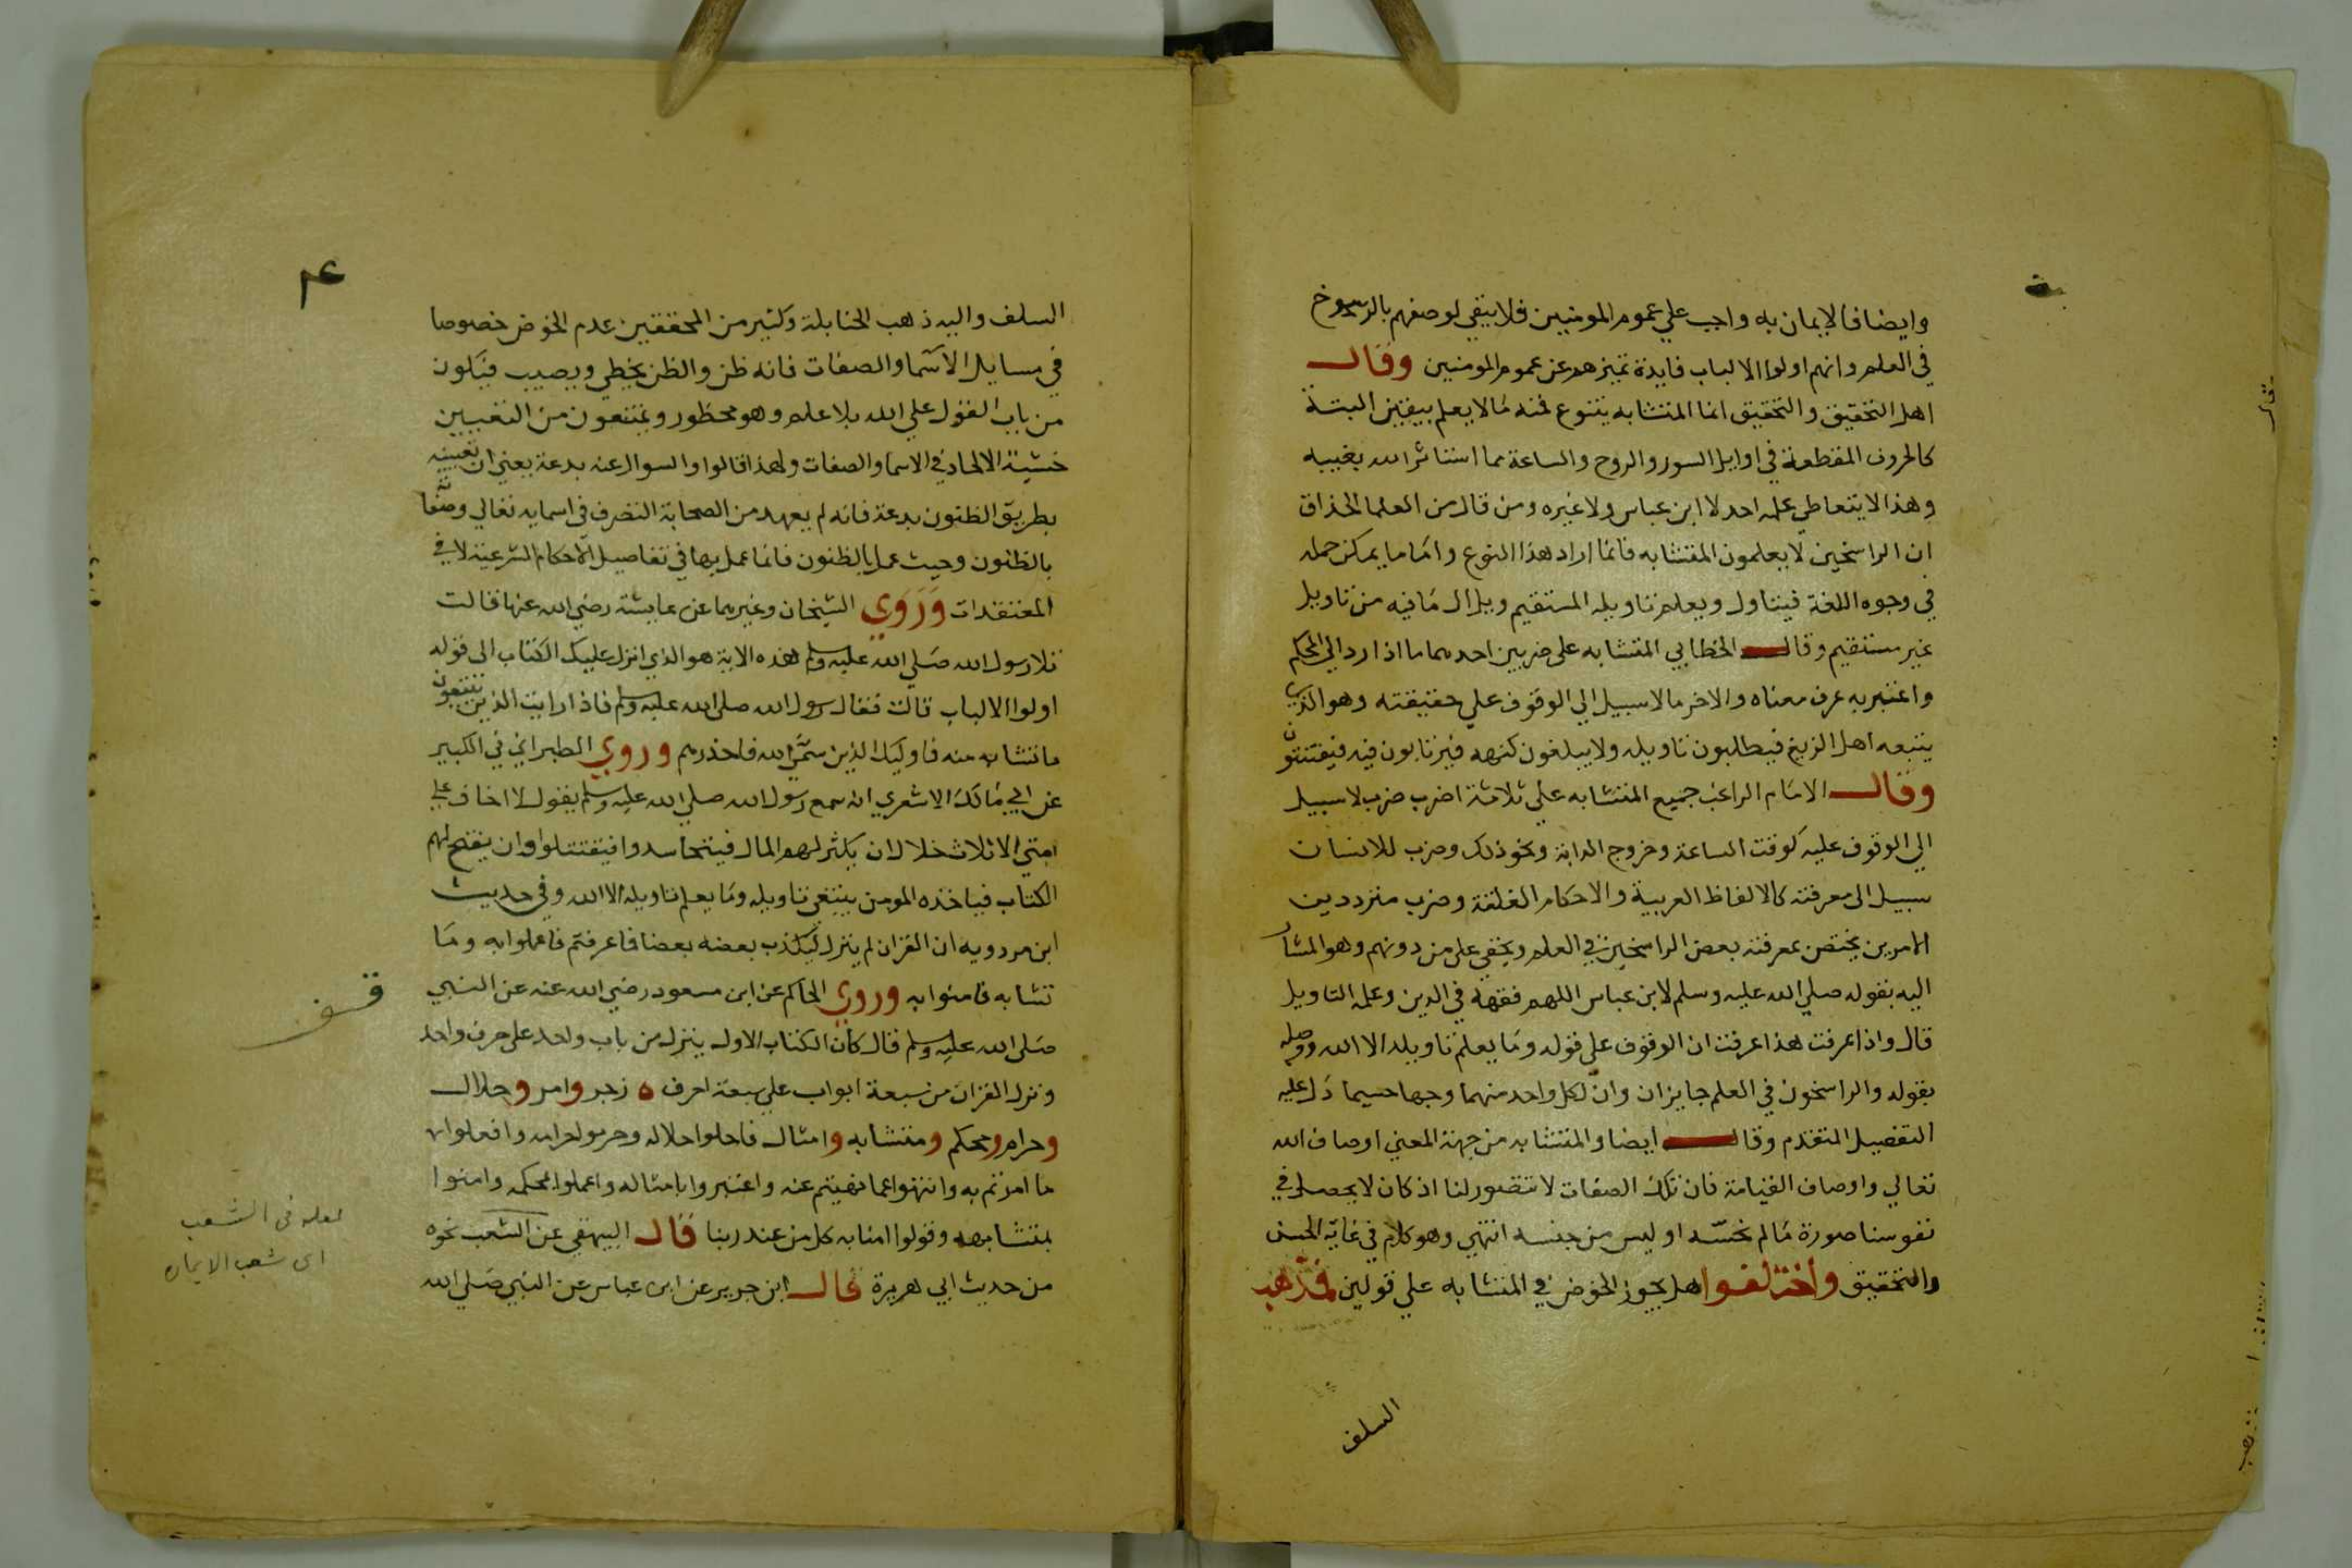 وايضا فالايمان به واجب علي عموم المومنين فلا يبقي لوصفهم بالرسوخ
في العلم وانهم اولوا الالباب فايدة تميزهم عن عموم المومنين وقال
اهل التحقيق والتحقيق انما المتشابه يتنوع فمنه ما لا يعلم بيقين البتة
كالحروف المقطعة في اوايل السور والروح والساعة مما استاثر الله بغيبه
وهذا لا يتعاطي علمه احد لا ابن عباس ولا غيره ومن قال من العلما الحذاق
ان الراسخين لا يعلمون المتشابه فانما اراد هذا النوع واما ما يمكن حمله
في وجوه اللغة فيتاول ويعلم تاويله المستقيم ويزال ما فيه من تاويل
غير مستقيم وقال الخطابي المتشابه على ضربين احدهما ما اذا رد الي المحكم
واعتبر به عرف معناه والاخر ما لا سبيل الي الوقوف علي حقيقته وهو الذي
يتبعه اهل الزيغ فيطلبون تاويله ولا يبلغون كنهه فيرتابون فيه فيفتتنون
وقال الامام الراغب جميع المتشابه علي ثلاثة اضرب ضرب لا سبيل
الي الوقوف عليه كوقت الساعة وخروج الدابة ونحو ذلك وضرب للانسان
سبيل الى معرفته كالالفاظ العربية والاحكام الغلقة وضرب متردد بين
الامرين يختص بمعرفته بعض الراسخين في العلم ويخفي على من دونهم وهو المشار
اليه بقوله صلي الله عليه وسلم لابن عباس اللهم فقهه في الدين وعلمه التاويل
قال واذا عرفت هذا عرفت ان الوقوف على قوله وما يعلم تاويله الا الله ووصله
بقوله والراسخون في العلم جايزان وان لكل واحد منهما وجها حسبما دل عليه
التفصيل المتقدم وقال ايضا والمتشابه من جهة المعني اوصاف الله
تعالي واوصاف القيامة فان تلك الصفات لا تتصور لنا اذ كان لا يحصل في
نفوسنا صورة ما لم نحسّه او ليس من جنسه انتهي وهو كلام في غاية الحسن
والتحقيق واختلفوا هل يجوز الخوض في المتشابه علي قولين فمذهب
السلف
٤
السلف واليه ذهب الحنابلة وكثير من المحققين عدم الخوض خصوصا
في مسايل الاسما والصفات فانه ظن والظن يخطي ويصيب فيكون
من باب القول علي الله بلا علم وهو محظور ويمتنعون من التعيين
خشية الالحاد في الاسما والصفات ولهذا قالوا والسوال عنه بدعة يعني ان تعيينه
بطريق الظنون بدعة فانه لم يعهد من الصحابة التصرف في اسمايه تعالي وصفاته
بالظنون وحيث عمل بالظنون فانما عمل بها في تفاصيل الاحكام الشرعية لا في
المعتقدات وروي الشيخان وغيرهما عن عايشة رضي الله عنها قالت
تلا رسول الله صلي الله عليه وسلم هذه الاية هو الذي انزل عليك الكتاب الى قوله
اولوا الالباب قالت فقال رسول الله صلي الله عليه وسلم فاذا رايت الذين يتبعون
ما تشابه منه فاوليك الذين سمي الله فاحذرهم وروي الطبراني في الكبير
عن ابي مالك الاشعري انه سمع رسول الله صلي الله عليه وسلم يقول لا اخاف علي
امتي الا ثلاث خلال ان يكثر لهم المال فيتحاسدوا فيقتتلوا وان يفتح لهم
الكتاب فياخذه المومن يبتغي تاويله وما يعلم تاويله الا الله وفي حديث
ابن مردويه ان القران لم ينزل ليكذب بعضه بعضا فما عرفتم فاعملوا به وما
تشابه فامنوا به وروي الحاكم عن ابن مسعود رضي الله عنه عن النبي
صلى الله عليه وسلم قال كان الكتاب الاول ينزل من باب واحد على حرف واحد
ونزل القران من سبعة ابواب علي سبعة احرف ه زجر وامر وحلال
وحرام ومحكم ومتشابه وامثال فاحلوا حلاله وحرموا حرامه وافعلوا
ما امرتم به وانتهوا عما نهيتم عنه واعتبروا بامثاله واعملوا بمحكمه وامنوا
بمتشابهه وقولوا امنا به كل من عند ربنا قال البيهقي عن الشعب نحوه
من حديث ابي هريرة قال ابن جرير عن ابن عباس عن النبي صلي الله
قف
لعله في الشعب
اى شعب الايمان